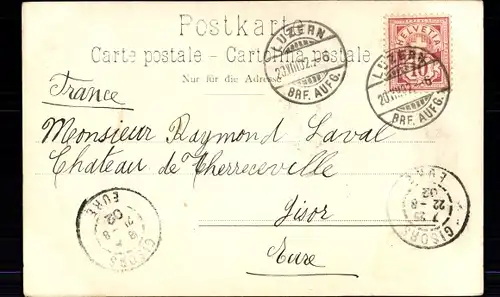 Postkarte
Carte postale – Cartolina postale
Nur für die Adresse
LUZERN
20.VIII.02.–6
BRF. AUFG.
HELVETIA
10
LUZERN
20.VIII.02.–6
BRF. AUFG.
France
Monsieur Raymond Laval
Chateau de Therreceville
Gisor
Eure
GISORS
EURE
02
GISORS
7 25
22 - 8
02
EURE